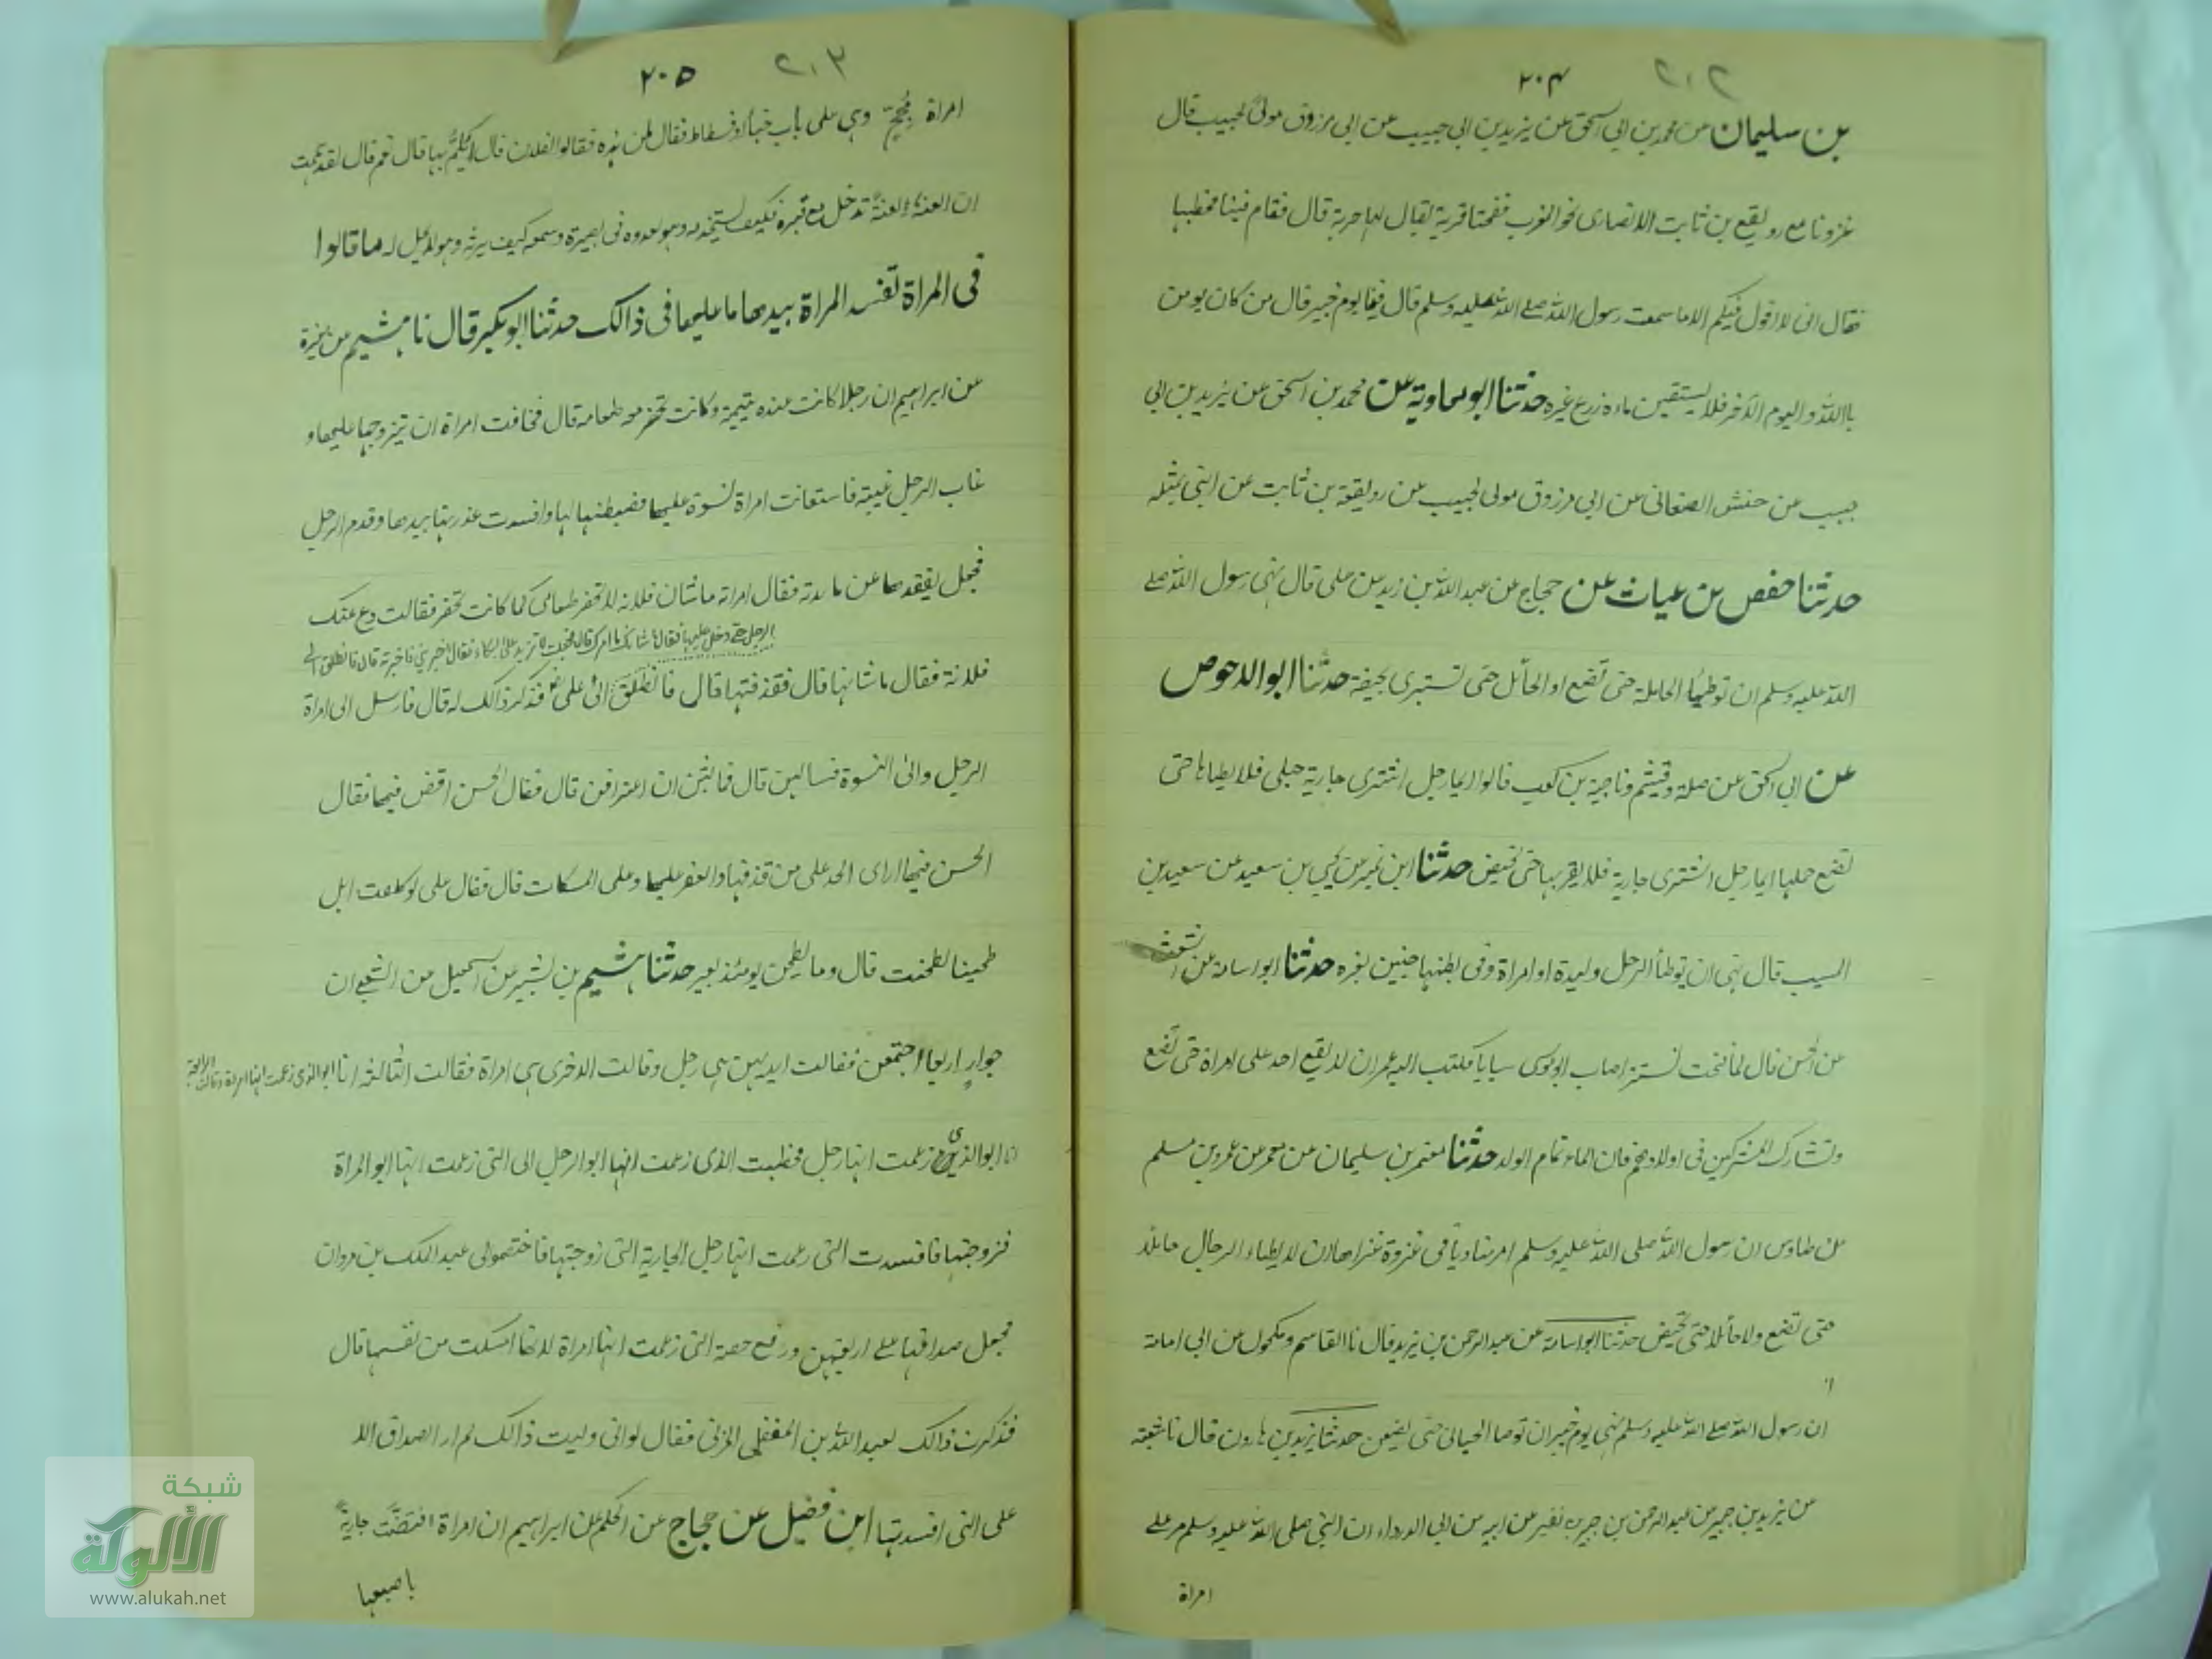 ٢٠٢ ٢٠٤
بن سليمان عن محمد بن ابى اسحق عن يزيد بن ابى حبيب عن ابى مرزوق مولى لحبيب قال
غزونا مع رويفع بن ثابت الانصارى نحو الغرب ففتحنا قرية يقال لها جربة قال فقام فينا مخطبها
فقال انى لا اقول فيكم الا ما سمعت رسول الله صلے الله عليه وسلم قال فينا يوم خيبر قال من كان يومن
باالله واليوم الآخر فلا يستقين ماءه زرع غيره حدثنا ابو معاوية عن محمد بن اسحق عن يزيد بن ابى
حبيب عن حنش الصغانى عن ابى مرزوق مولى لحبيب عن رويفعة بن ثابت عن النبى بمثله
حدثنا حفص بن غياث عن حجاج عن عبد الله بن زيد عن على قال نهى رسول الله صلے
الله عليه وسلم ان توطئا الحاملة حتى تضع او الحائل حتى تستبرى بحيضة حدثنا ابو الاحوص
عن ابى اسحق عن صلة وقيثم وناجية بن كعب قالوا ايما رجل اشترى جارية حبلى فلا يطاها حتى
تضع حملها ايما رجل اشترى جارية فلا يقربها حتى تحيض حدثنا ابن نمير عن يحيى بن سعيد عن سعيد بن
المسيب قال نهى ان يوطأ الرجل وليدة او امراة وفى بطنها جنين لغيره حدثنا ابو اسامة عن اشعث
عن الحسن قال لما فتحت تستر اصاب ابو موسى سبايا فكتب اليه عمر ان لا يقع احد على امراة حتى تضع
وتشارك المشركين فى اولادهم فان الماء تمام الولد حدثنا معتمر بن سليمان عن معمر عن عمرو بن مسلم
عن طاوس ان رسول الله صلى الله عليه وسلم امر مناديا فى غزوة غزاها ان لا يطاء الرجال حاملا
حتى تضع ولا حائلا حتى تحيض حدثنا ابو اسامة عن عبد الرحمن بن يزيد قال نا القاسم ومكحول عن ابى امامة
ان رسول الله صلے الله عليه وسلم نهى يوم خيبر ان توطا الحبالى حتى يضعن حدثنا يزيد بن هارون قال نا شعبة
عن يزيد بن خمير عن عبد الرحمن بن جبير بن نفير عن ابيه عن ابى الدرداء ان النبى صلى الله عليه وسلم مر على
امراة
٢٠٣ ٢٠٥
امراة مُجِحّ وهى على باب خباء او فسطاط فقال لمن هذه فقالوا لفلان قال ايلمّ بها قال نعم قال لقد هممت
ان العنه لعنةً تدخل مع قبره فكيف يستخدمه وهو يعدوه فى بصيرة وسمعه كيف يرثه وهو لا يحل له ما قالوا
فى المراة تفسد المراة بيدها ما عليها فى ذالك حدثنا ابو بكير قال نا هشيم عن مغيرة
عن ابراهيم ان رجلا كانت عنده يتيمة وكانت تحضر معه طعامه قال فخافت امراة ان يتزوجها عليها و
غاب الرجل غيبة فاستعانت امراة نسوة عليها فضبطنها لها وافسدت عذرتها بيدها وقدم الرجل
فجعل يفقدها عن مائدته فقال امراته ما شان فلانه لا تحضر طعامى كما كانت تحضر فقالت دع عنك
الرجل حتى دخل عليها فقال ما شانك ما امرك قال فجعلت لا تزيد على البكاء فقال اخبرينى فاخبرته قال فانطلق الى
فلانة فقال ما شانها قال فقذفتها قال فانطلق الى على فذكر ذالك له قال فارسل الى امراة
الرجل والى النسوة فسالهن قال فما لبثن ان اعترافن قال فقال الحسن اقض فيها فقال
الحسن فيها ارى الحد على من قذفها والعقر عليها وعلى المسكات قال فقال على لو كلفت ابل
طحينا لطحنت قال وما يطحن يومئذ بعير حدثنا هشيم بن بشير عن اسمعيل عن الشعبى ان
جوارٍ اربعا اجتمعن فقالت احديهن هى رجل وقالت الاخرى هى امراة فقالت الثالثة انا ابو الذى زعمت انها امراة وقالت الرابعة
انا ابو الذى زعمت انها رجل فخطبت الذى زعمت انها ابو الرجل الى التى زعمت انها ابو المراة
فزوجتها فافسدت التى زعمت انها رجل الجارية التى زوجتها فاختصموا الى عبد الملك بن مروان
فجعل صداقها على اربعتهن ورفع حصة التى زعمت انها امراة لانها امسكت من نفسها قال
فذكرت ذالك لعبد الله بن المغفل المزنى فقال لو انى وليت ذالك لم ار الصداق الا
على التى افسدتها ابن فضيل عن حجاج عن الحكم عن ابراهيم ان امراة افتضّت جاريةً
باصبعها
شبكة
الألوكة
www.alukah.net